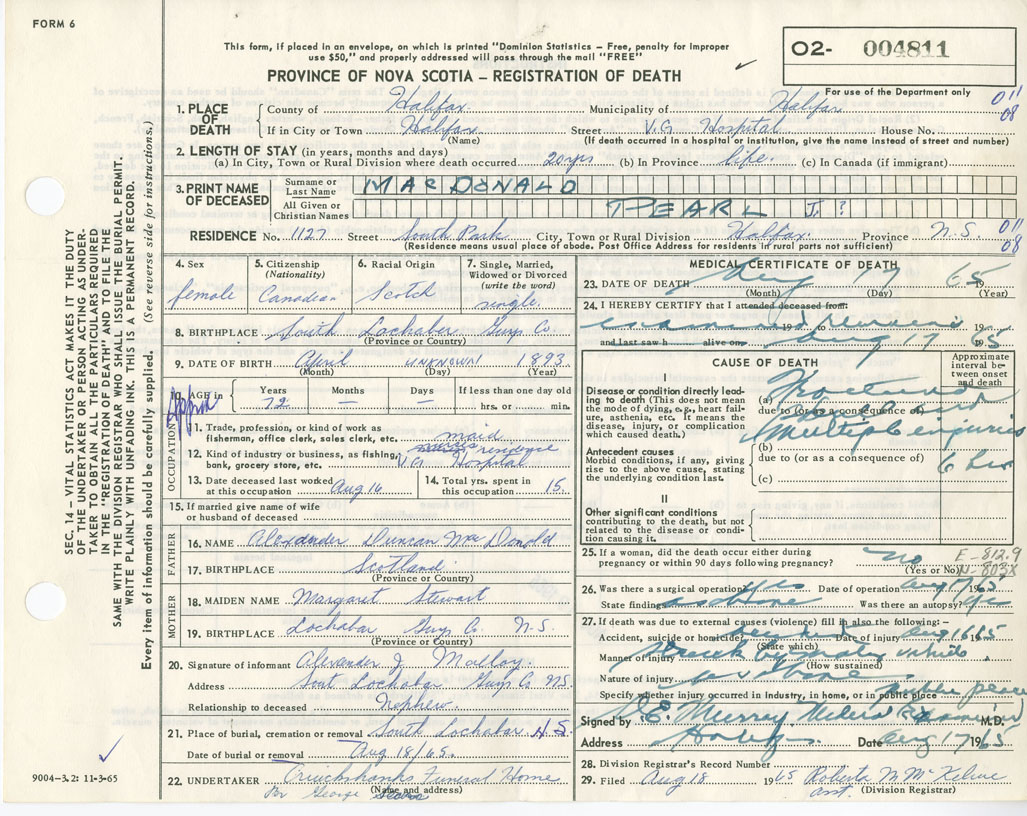 FORM 6
This form, if placed in an envelope, on which is printed "Dominion Statistics – Free, penalty for improper
use $50," and properly addressed will pass through the mail "FREE"
PROVINCE OF NOVA SCOTIA – REGISTRATION OF DEATH
O2- 004811
For use of the Department only
011
08
1. PLACE OF DEATH
County of Halifax Municipality of Halifax
If in City or Town Halifax Street V.G. Hospital House No.
(Name) (If death occurred in a hospital or institution, give the name instead of street and number)
2. LENGTH OF STAY (in years, months and days)
(a) In City, Town or Rural Division where death occurred 20 yrs (b) In Province life. (c) In Canada (if immigrant)
3. PRINT NAME OF DECEASED
Surname or Last Name MACDONALD
All Given or Christian Names PEARL J. ?
RESIDENCE No. 1127 Street South Park City, Town or Rural Division Halifax Province N.S. 011
08
(Residence means usual place of abode. Post Office Address for residents in rural parts not sufficient)
4. Sex
female
5. Citizenship
(Nationality)
Canadian
6. Racial Origin
Scotch
7. Single, Married,
Widowed or Divorced
(write the word)
single.
8. BIRTHPLACE South Lochaber Guys Co
(Province or Country)
9. DATE OF BIRTH April unknown 1893
(Month) (Day) (Year)
10. AGE in Years Months Days If less than one day old
Approx
72 – – hrs. or min.
OCCUPATION
11. Trade, profession or kind of work as
fisherman, office clerk, sales clerk, etc. maid
12. Kind of industry or business, as fishing, nurses residence
bank, grocery store, etc. V.G. Hospital
13. Date deceased last worked
at this occupation Aug 16
14. Total yrs. spent in
this occupation 15
15. If married give name of wife
or husband of deceased
FATHER
16. NAME Alexander Duncan MacDonald
17. BIRTHPLACE Scotland
(Province or Country)
MOTHER
18. MAIDEN NAME Margaret Stewart
19. BIRTHPLACE Lochabar Guys Co. N.S.
(Province or Country)
20. Signature of informant Alexander J. Malloy
Address Sout Lochabar Guys Co NS
Relationship to deceased Nephew.
21. Place of burial, cremation or removal South Lochabar N.S.
Date of burial or removal Aug 18/65.
22. UNDERTAKER Cruickshanks Funeral Home
(Name and address)
Per George
MEDICAL CERTIFICATE OF DEATH
23. DATE OF DEATH Aug 17 65
(Month) (Day) (Year)
24. I HEREBY CERTIFY that I attended deceased from:
examined 19 to remains 19
and last saw h alive on Aug 17 65
CAUSE OF DEATH
Approximate
interval be-
tween onset
and death
I
Disease or condition directly lead-
ing to death (This does not mean
the mode of dying, e.g., heart fail-
ure, asthenia, etc. It means the
disease, injury, or complication
which caused death.)
(a) Fractured
due to (or as a consequence of)
multiple injuries
Antecedent causes
Morbid conditions, if any, giving
rise to the above cause, stating
the underlying condition last.
(b)
due to (or as a consequence of) 6 hrs
(c)
II
Other significant conditions
contributing to the death, but not
related to the disease or condi-
tion causing it.
25. If a woman, did the death occur either during
pregnancy or within 90 days following pregnancy? no
(Yes or No)
E-812.9
N-803X
26. Was there a surgical operation? yes Date of operation Aug 17 1965
State findings as above Was there an autopsy? yes
27. If death was due to external causes (violence) fill in also the following: –
Accident, suicide or homicide? accident Date of injury Aug 16 65
(State which)
Manner of injury struck by motor vehicle
(How sustained)
Nature of injury as above
Specify whether injury occurred in industry, in home, or in public place public place
Signed by Murray Medical Examiner M.D.
Address Halifax Date Aug 17 1965
28. Division Registrar's Record Number
29. Filed Aug 18 1965 Roberta M McKelvie
asst. (Division Registrar)
SEC. 14 – VITAL STATISTICS ACT MAKES IT THE DUTY
OF THE UNDERTAKER OR PERSON ACTING AS UNDER-
TAKER TO OBTAIN ALL THE PARTICULARS REQUIRED
IN THE "REGISTRATION OF DEATH" AND TO FILE THE
SAME WITH THE DIVISION REGISTRAR WHO SHALL ISSUE THE BURIAL PERMIT.
WRITE PLAINLY WITH UNFADING INK. THIS IS A PERMANENT RECORD.
Every item of information should be carefully supplied. (See reverse side for instructions.)
9004-3.2: 11-3-65